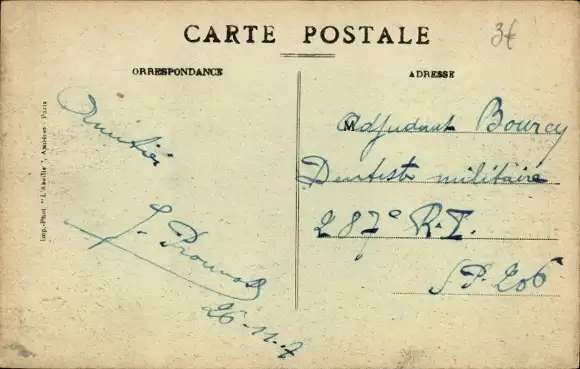 CARTE POSTALE
3€
ORRESPONDANCE
ADRESSE
Imp.-Phot. "L'Abeille", Asnières-Paris
Amitiés
J.
26-11-
M Adjudant Bourcy
Dentiste militaire
287e R.I.
S.P. 206